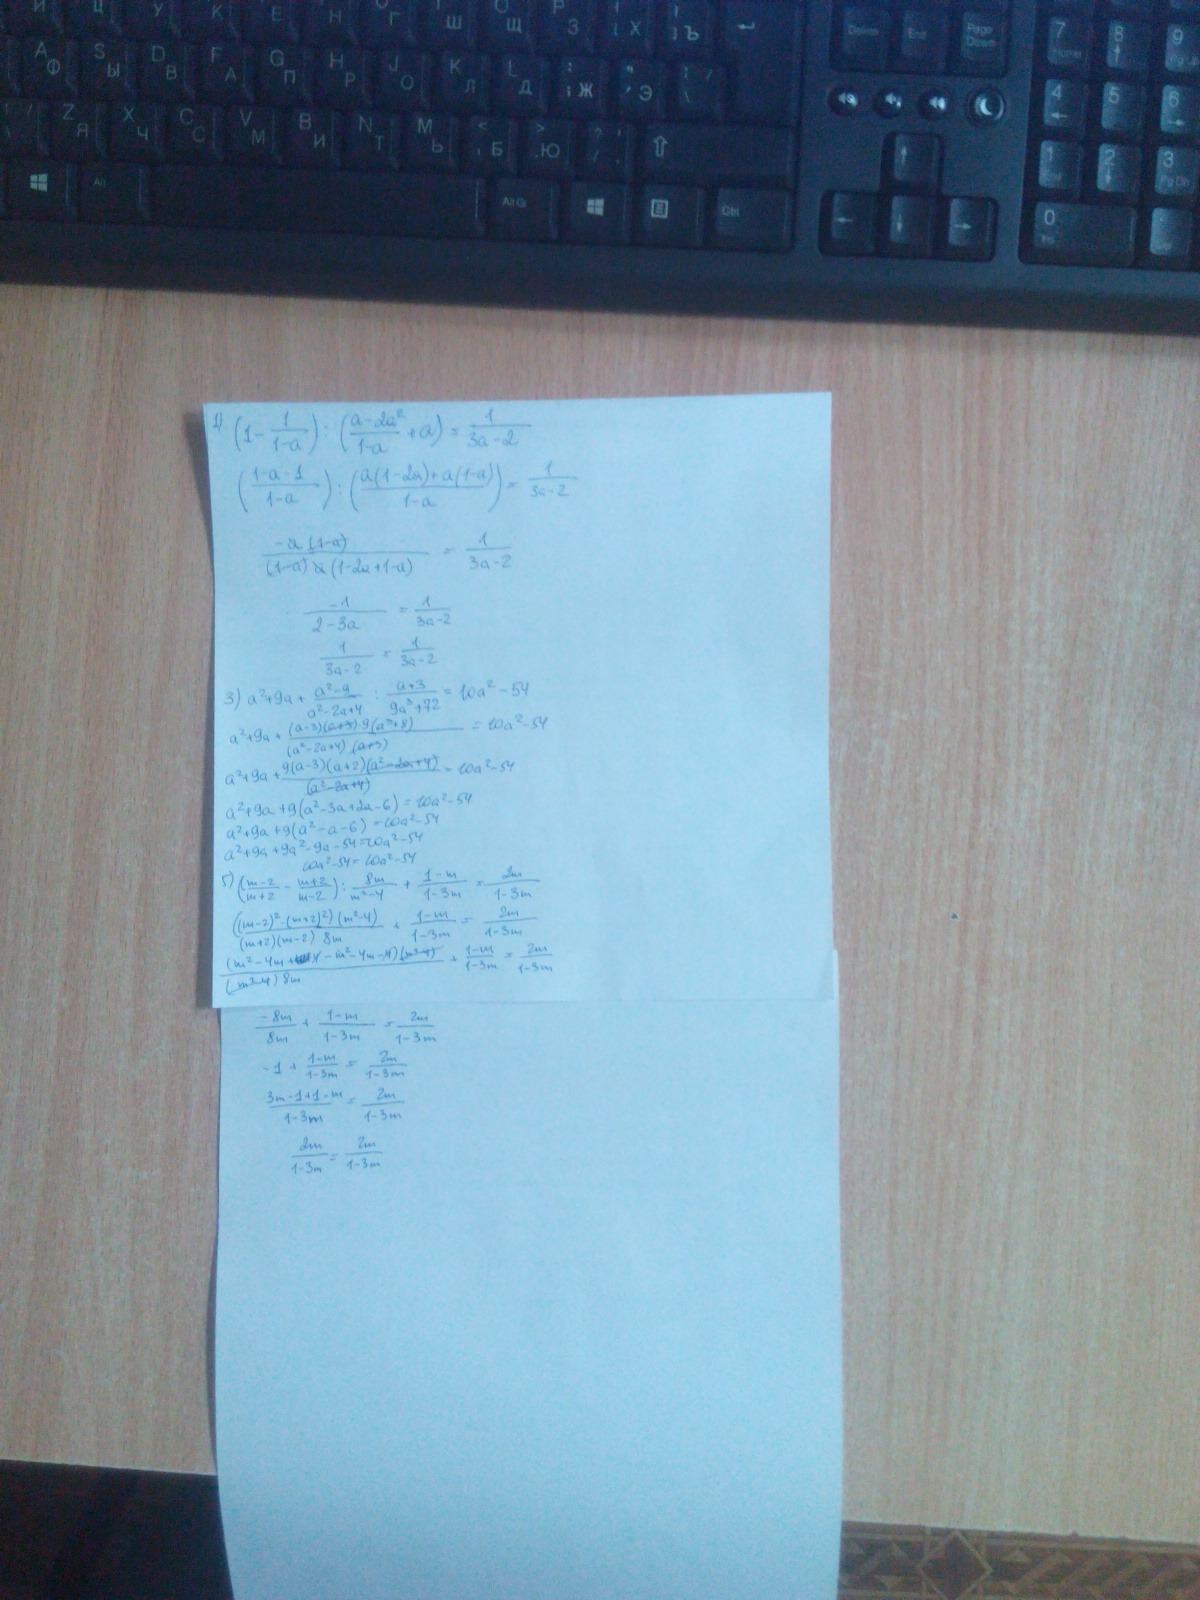 Й Ц У К Е Н Г Ш O Щ P З [ Х ] Ъ Delete End Page Down 7 Home 8 9
A Ф S Ы D В F А G П H Р J О K Л L Д ; Ж " ' Э \ / 4 5 6
Z Я X Ч C С V М B И N Т M Ь < , Б > . Ю ? / . 1 End 2 3 Pg Dn
Alt Alt Gr Ctrl 0 Ins Del
1) (1 - 1/(1-a)) : ((a-2a²)/(1-a) + a) = 1/(3a-2)
((1-a-1)/(1-a)) : ((a(1-2a)+a(1-a))/(1-a)) = 1/(3a-2)
(-a(1-a))/((1-a)a(1-2a+1-a)) = 1/(3a-2)
-1/(2-3a) = 1/(3a-2)
1/(3a-2) = 1/(3a-2)
3) a²+9a + (a²-9)/(a²-2a+4) : (a+3)/(9a³+72) = 10a²-54
a²+9a + ((a-3)(a+3)·9(a³+8))/((a²-2a+4)(a+3)) = 10a²-54
a²+9a + (9(a-3)(a+2)(a²-2a+4))/(a²-2a+4) = 10a²-54
a²+9a+9(a²-3a+2a-6) = 10a²-54
a²+9a+9(a²-a-6) = 10a²-54
a²+9a+9a²-9a-54 = 10a²-54
10a²-54 = 10a²-54
5) ((m-2)/(m+2) - (m+2)/(m-2)) : 8m/(m²-4) + (1-m)/(1-3m) = 2m/(1-3m)
(((m-2)²-(m+2)²)(m²-4))/((m+2)(m-2) 8m) + (1-m)/(1-3m) = 2m/(1-3m)
((m²-4m+4-m²-4m-4)(m²-4))/((m²-4) 8m) + (1-m)/(1-3m) = 2m/(1-3m)
-8m/8m + (1-m)/(1-3m) = 2m/(1-3m)
-1 + (1-m)/(1-3m) = 2m/(1-3m)
(3m-1+1-m)/(1-3m) = 2m/(1-3m)
2m/(1-3m) = 2m/(1-3m)